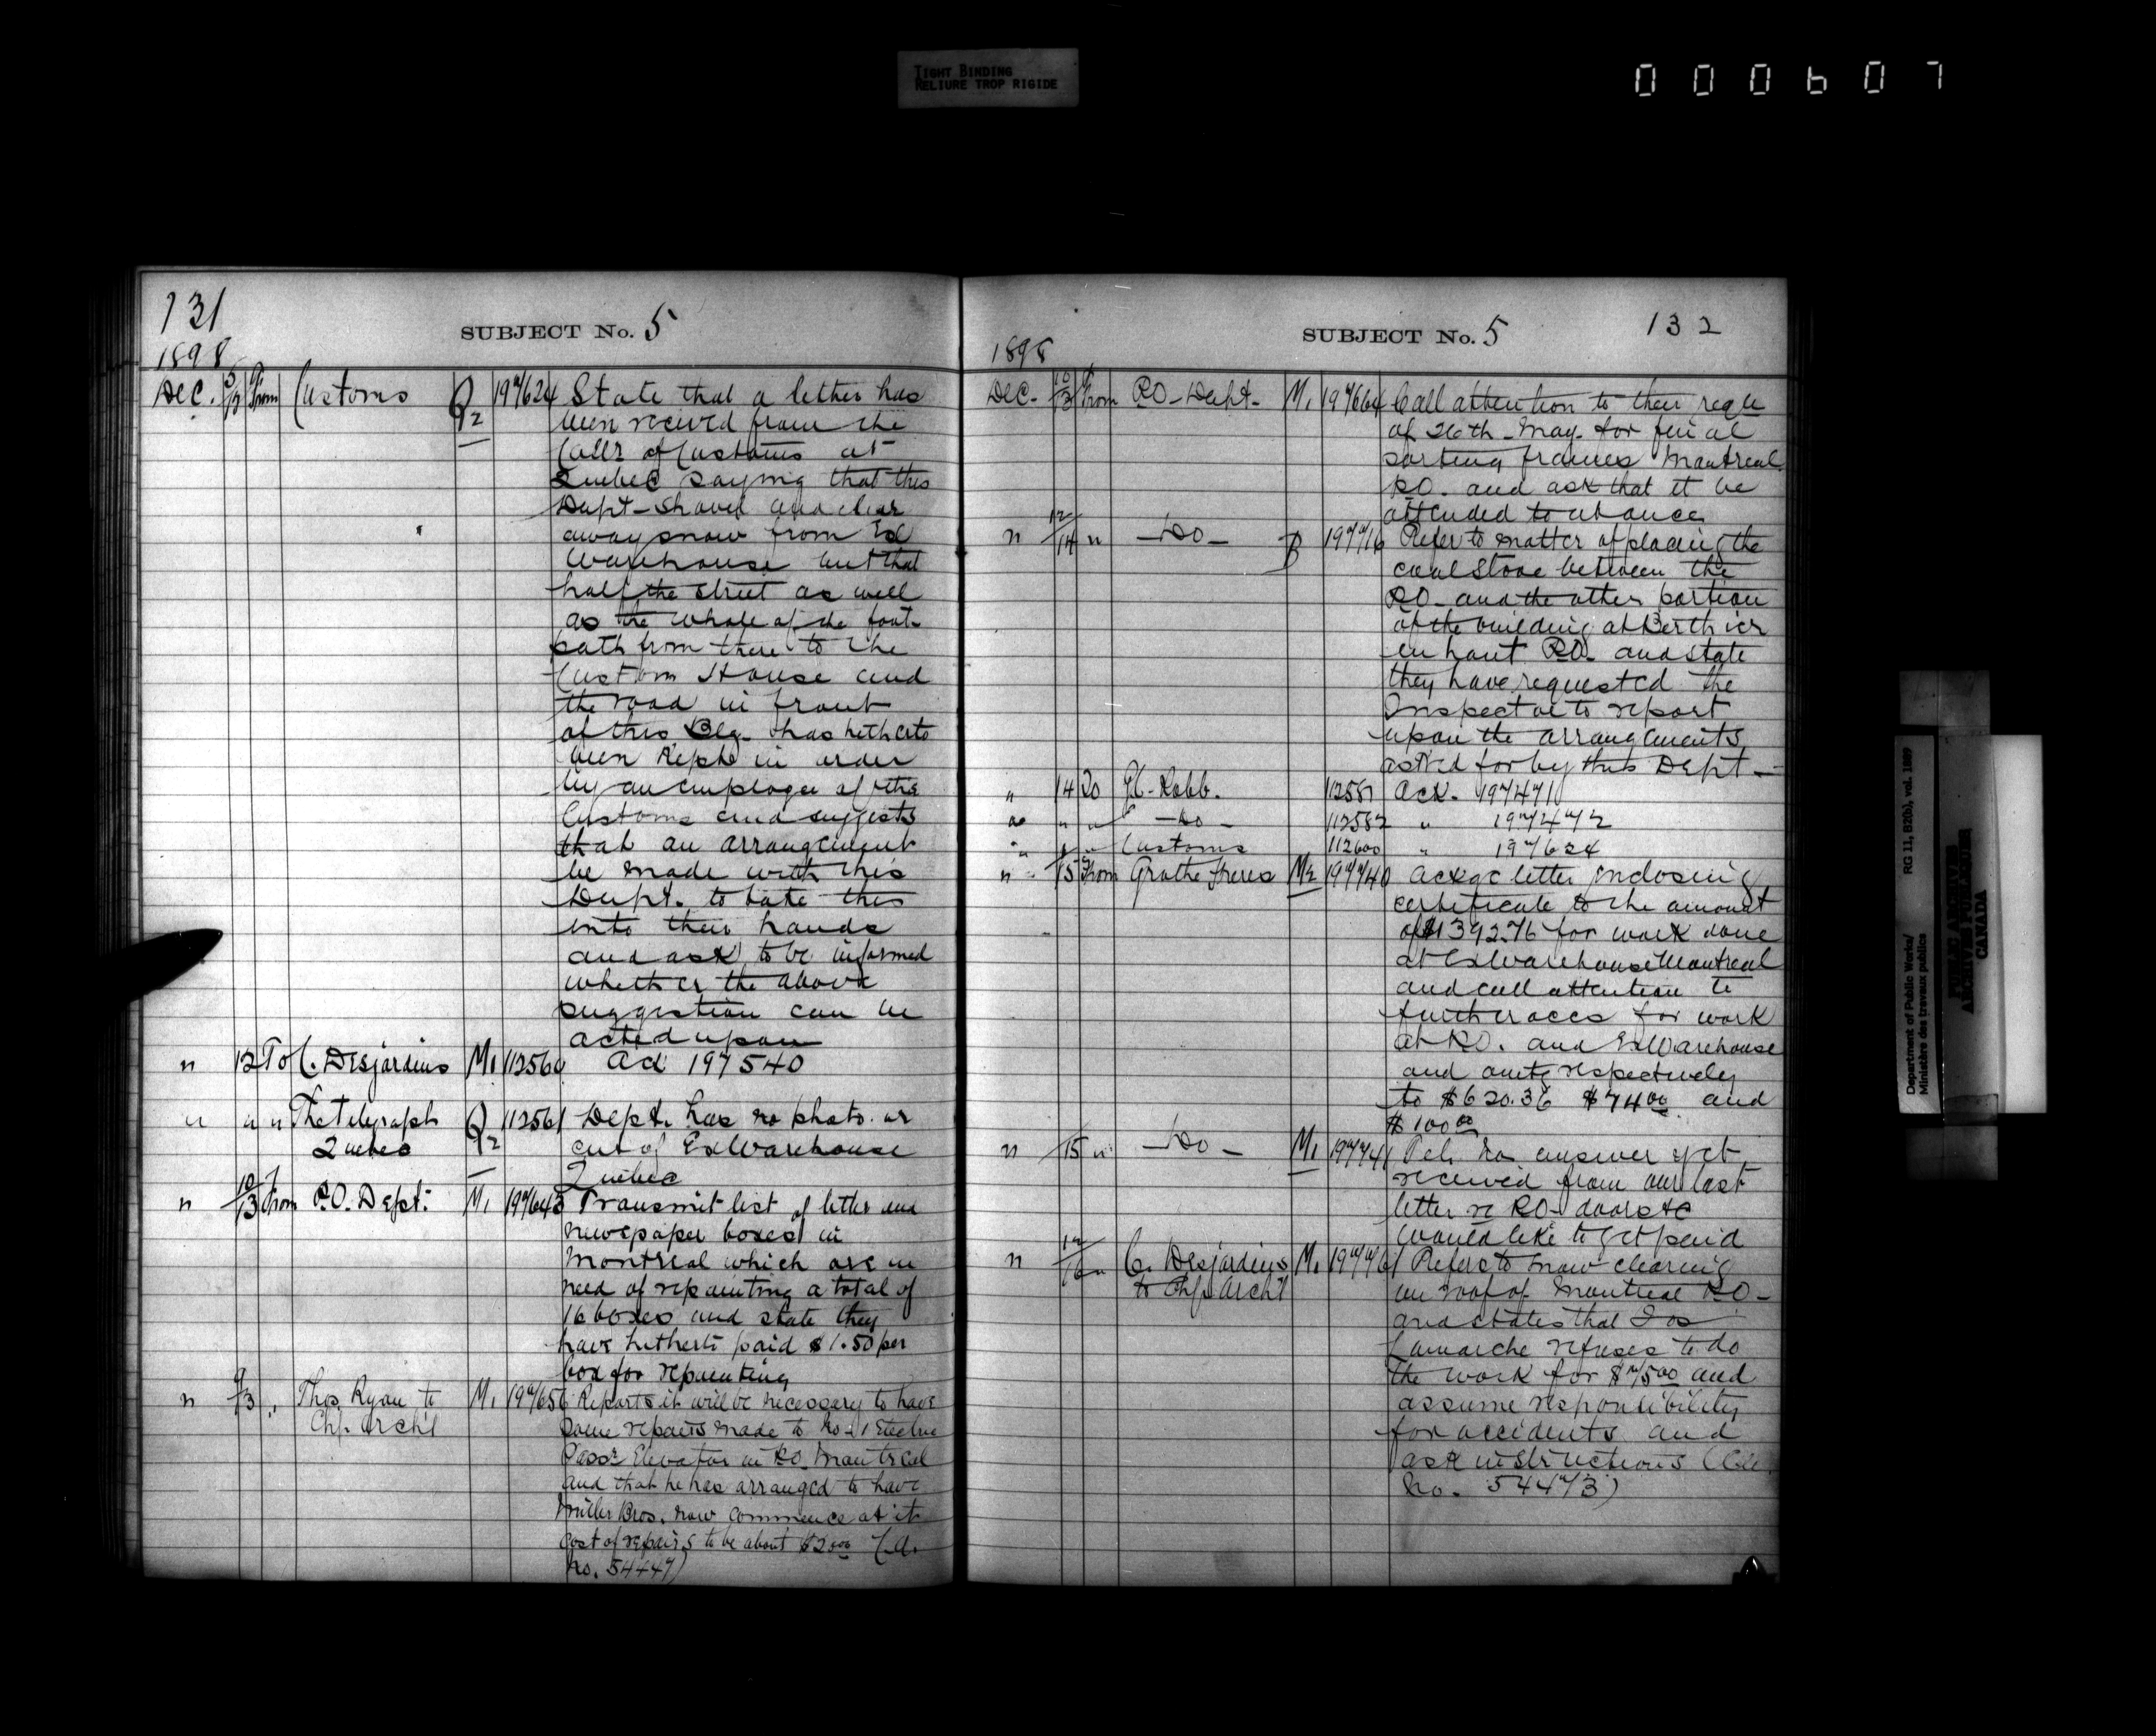 TIGHT BINDING
RELIURE TROP RIGIDE
000607
131
SUBJECT No. 5
1898
Dec. 5/12 From Customs Q2 197624 State that a letter has
been received from the
Collr of Customs at
Quebec saying that this
Dept- shovel and clear
away snow from Ex
Warehouse but that
half the street as well
as the whole of the foot-
path from there to the
Custom House and
the road in front
of this Blg. has hitherto
been kept in order
by an employee of the
Customs and suggests
that an arrangement
be made with this
Dept. to take this
into their hands
and ask to be informed
whether the above
suggestion can be
acted upon
" 12 To C. Desjardins M1 112560 Ack 197540
" " " The Telegraph Q2 112561 Dept. has no photo. or
Quebec cut of ExWarehouse
Quebec
" 10/13 From P.O. Dept. M1 197643 Transmit list of letter and
newspaper boxes in
Montreal which are in
need of repainting a total of
16 boxes and state they
have hitherto paid $1.50 per
box for repainting
" 9/13 " Thos. Ryan to M1 197656 Reports it will be necessary to have
Chf. Archt some repairs made to No-1 Electric
Passr Elevator in P.O. Montreal
and that he has arranged to have
Miller Bros. now commence at it
cost of repairs to be about $20.00 (C.A.
No. 54447)
SUBJECT No. 5
132
1898
Dec. 10/13 From P.O. Dept. M1 197664 Call attention to their reqn
of 26th May. for
sorting frames Montreal
P.O. and ask that it be
attended to at once
" 12/14 " -Do- B 197716 Refer to matter of placing the
coal stove between the
P.O. and the other portion
of the building at Berthier
en haut P.O. and state
they have requested the
Inspector to report
upon the arrangements
asked for by this Dept-
" 14 To Robb. 112581 Ack. 197471
" " " -Do- 112582 " 197472
" " " Customs 112600 " 197624
" 15 From Grothe Freres M2 197740 Ackge letter inclosing
certificate to the amount
of $1392.76 for work done
at ExWarehouse Montreal
and call attention to
further accs for work
at P.O. and ExWarehouse
and amtg respectively
to $620.36 $74.00 and
$100.00
" 15 " -Do- M1 197741 no answer yet
received from our last
letter re P.O. doors &c
would like to get paid
" 12/16 " C. Desjardins M1 197761 Refers to snow clearing
to Chf. Archt on roof of Montreal P.O-
and states that Jos
Lamarche refuses to do
the work for $75.00 and
assume responsibility
for accidents and
ask instructions (C.A.
No. 54473)
Department of Public Works/
Ministère des travaux publics
RG 11, B2(b), vol. 1889
PUBLIC ARCHIVES
ARCHIVES PUBLIQUES
CANADA